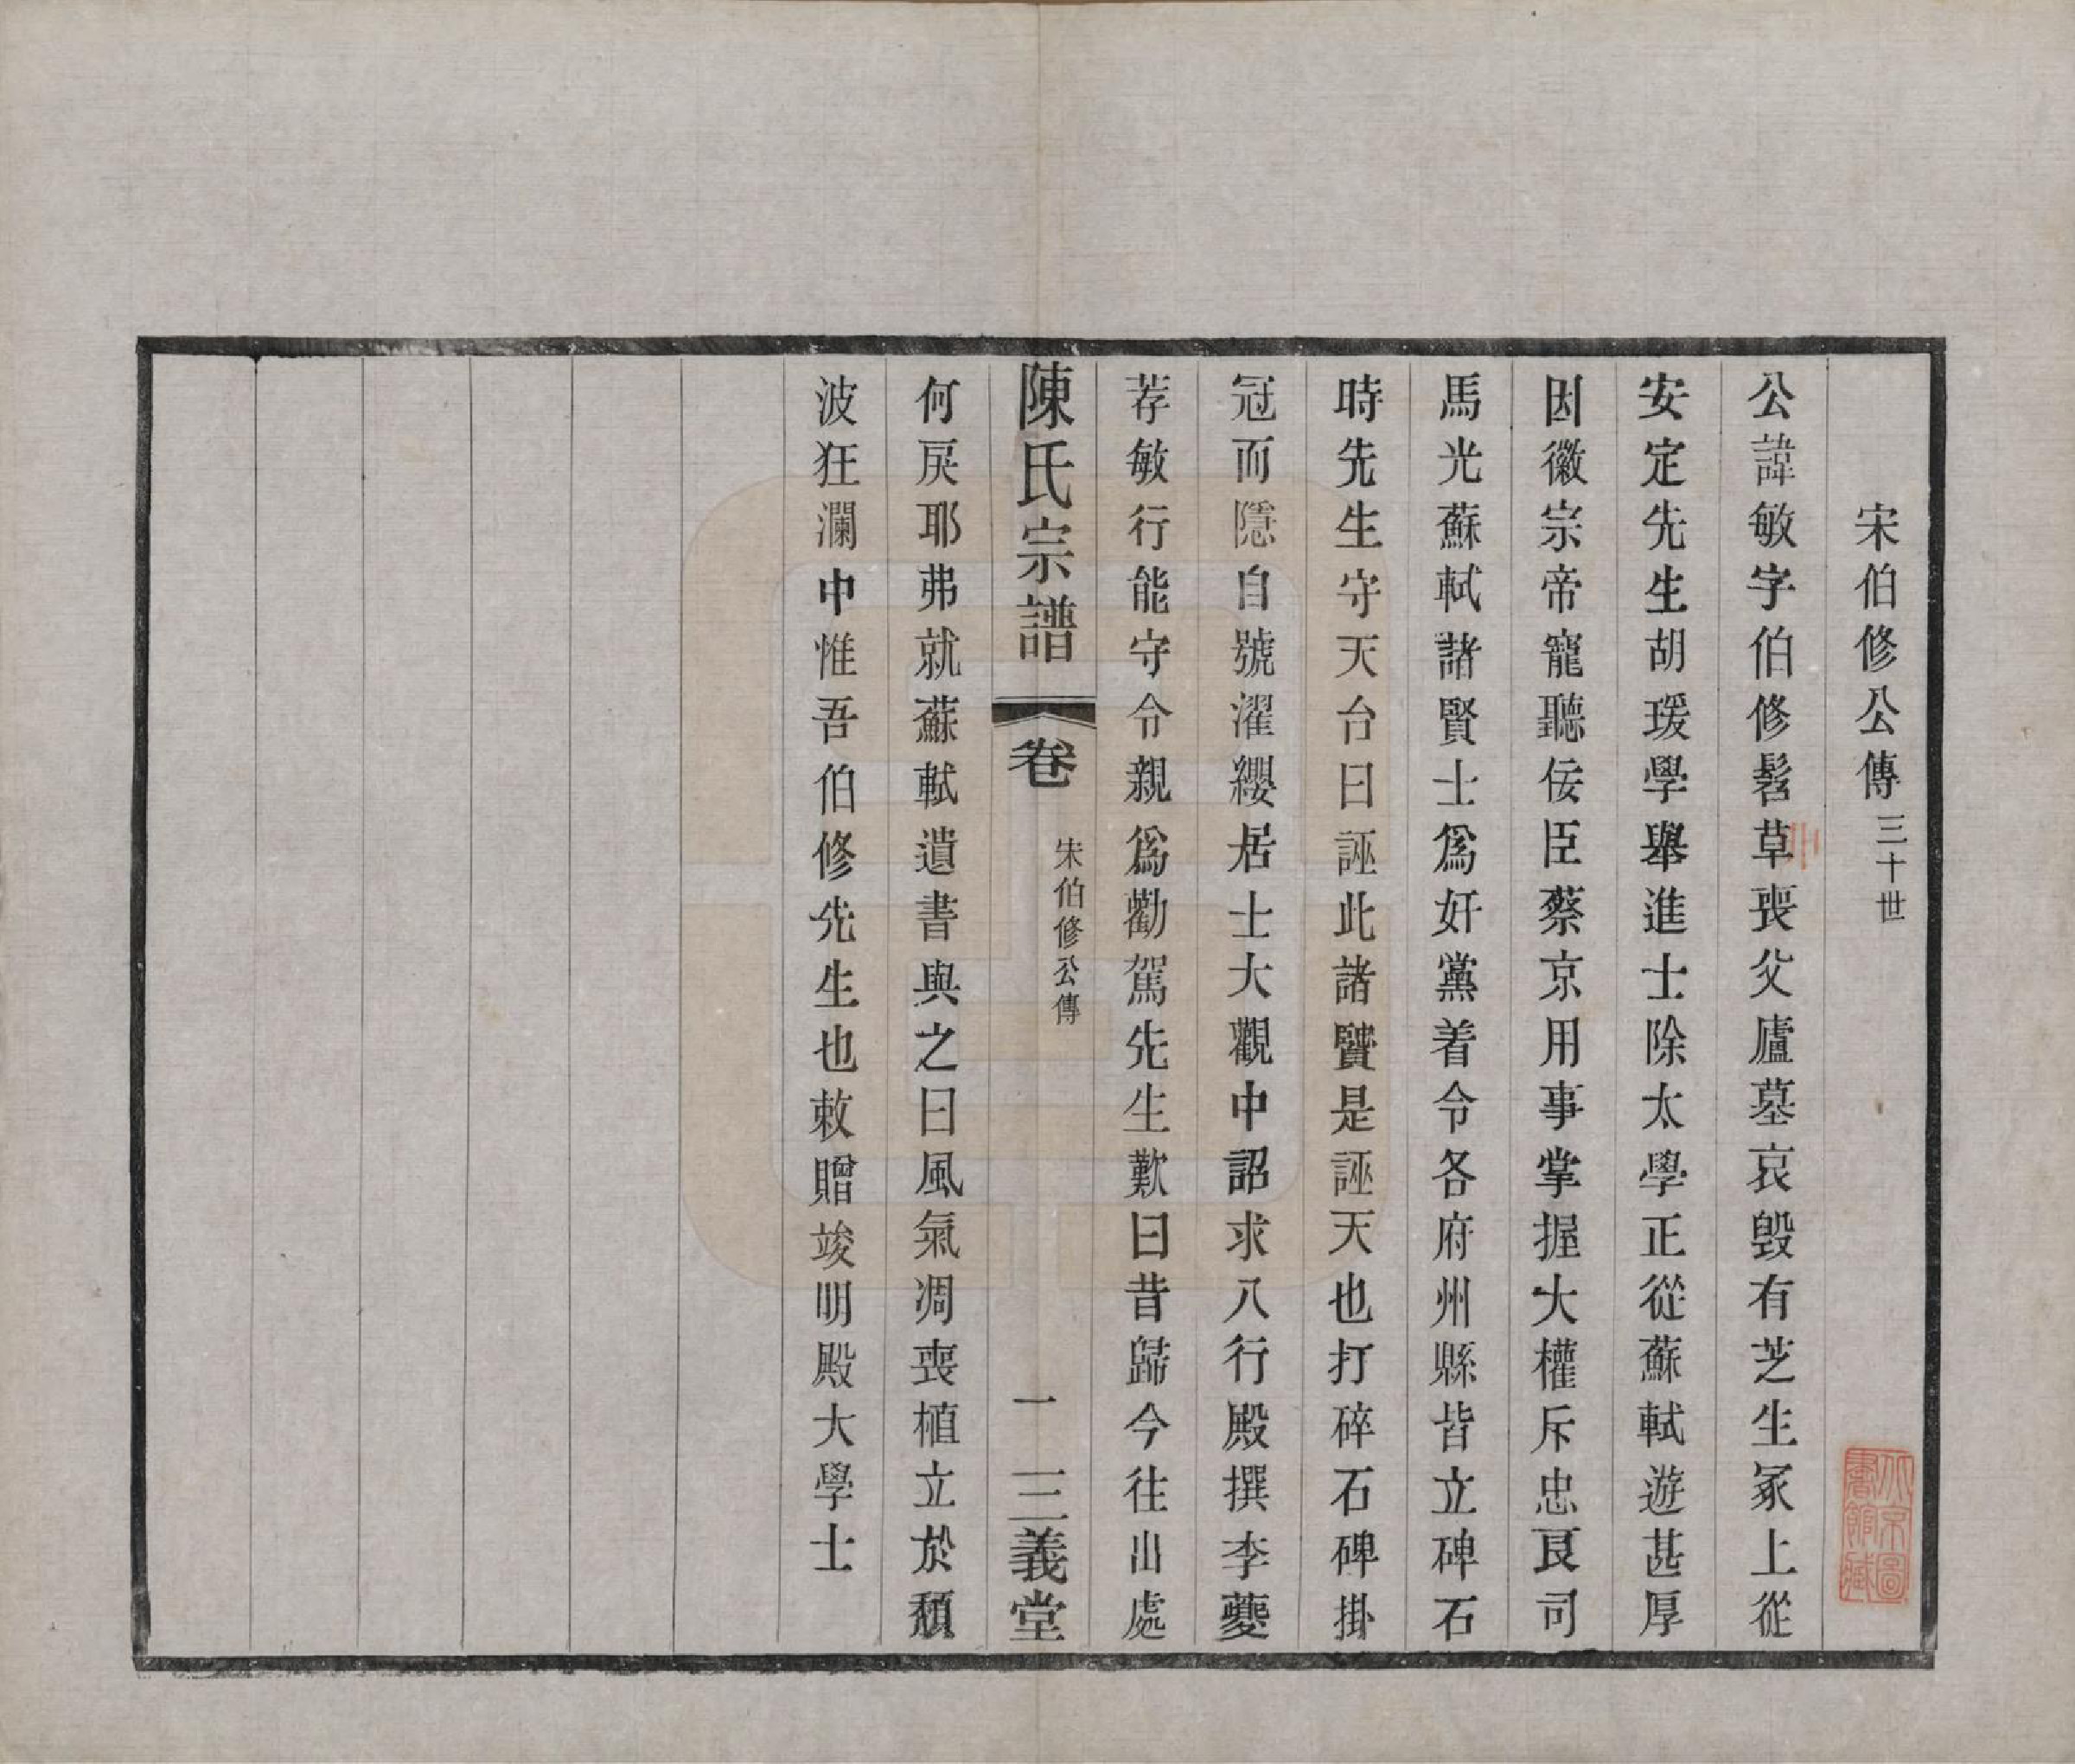 宋伯修公傳三十世
公諱敏字伯修髫草喪父廬墓哀毁有芝生冢上從
安定先生胡瑗學舉進士除太學正從蘇軾遊甚厚
因徽宗帝寵聽佞臣蔡京用事掌握大權斥忠良司
馬光蘇軾諸賢士爲奸黨着令各府州縣皆立碑石
時先生守天台曰誣此諸賢是誣天也打碎石碑掛
冠而隱自號濯纓居士大觀中詔求八行殿撰李夔
荐敏行能守令親爲勸駕先生歎曰昔歸今往出處
陳氏宗譜 卷 宋伯修公傳 一 三義堂
何戾耶弗就蘇軾遺書與之曰風氣凋喪植立於頹
波狂瀾中惟吾伯修先生也敕贈竣明殿大學士
北京圖書館藏